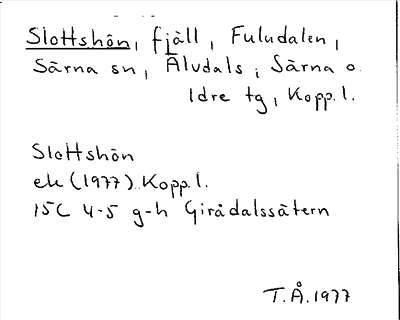 Slottshön, fjäll, Fuludalen,
Särna sn, Älvdals, Särna o.
Idre tg, Kopp. l.
Slottshön
ek (1977) Kopp. l.
15C 4-5 g-h Girådalssätern
T.Å. 1977